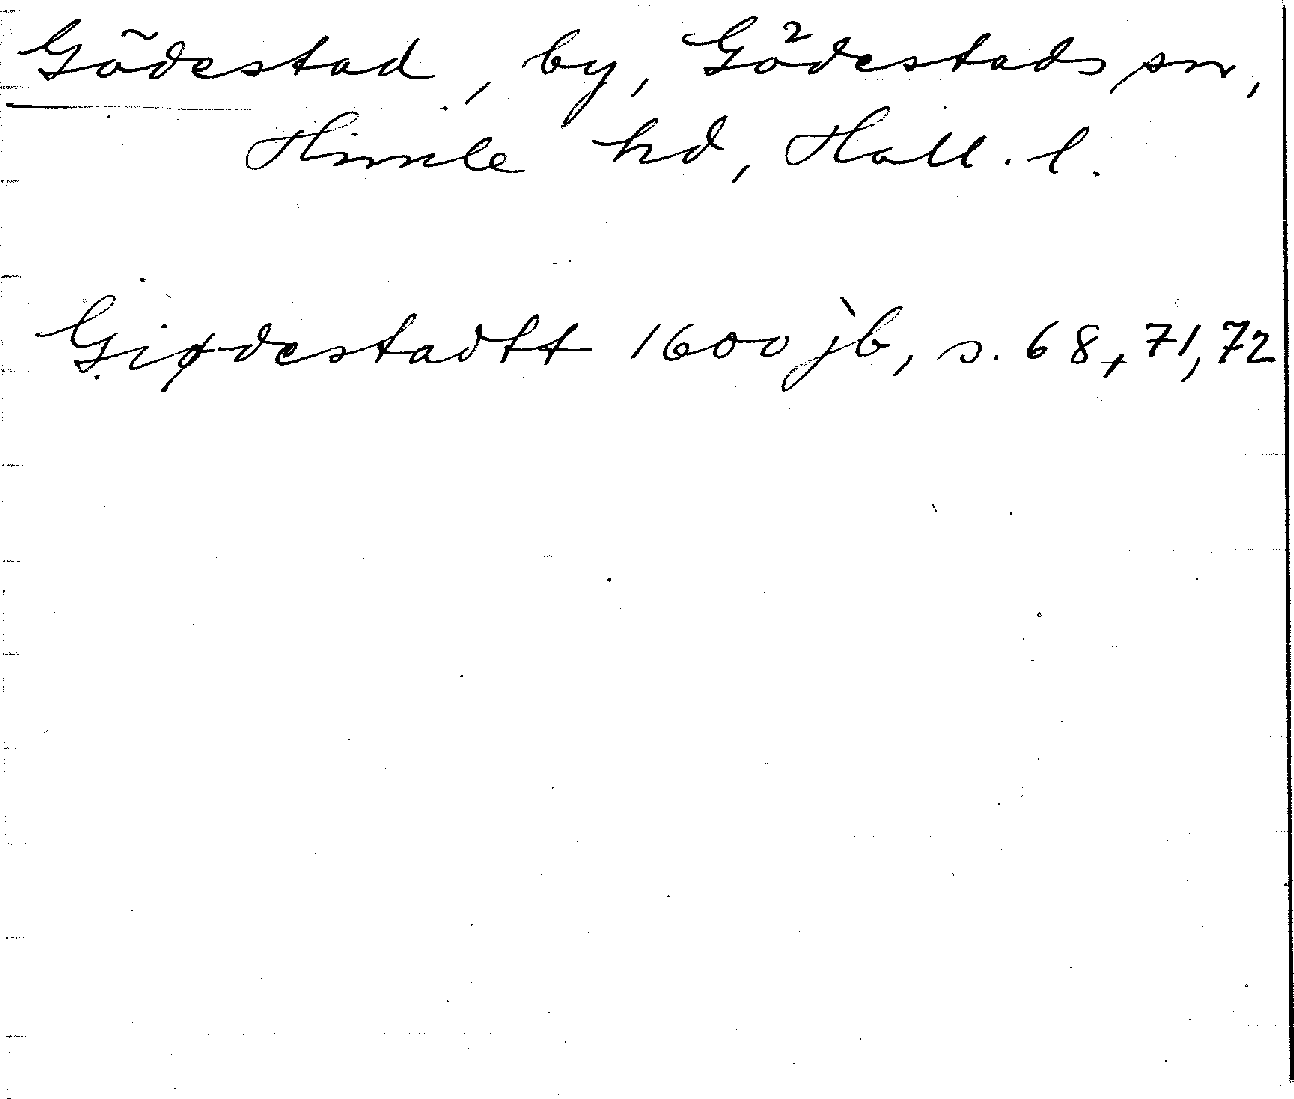 Gödestad, by, Gödestads sn,
Himle hd, Hall. l.
Giødestadtt 1600 jb, s. 68, 71, 72